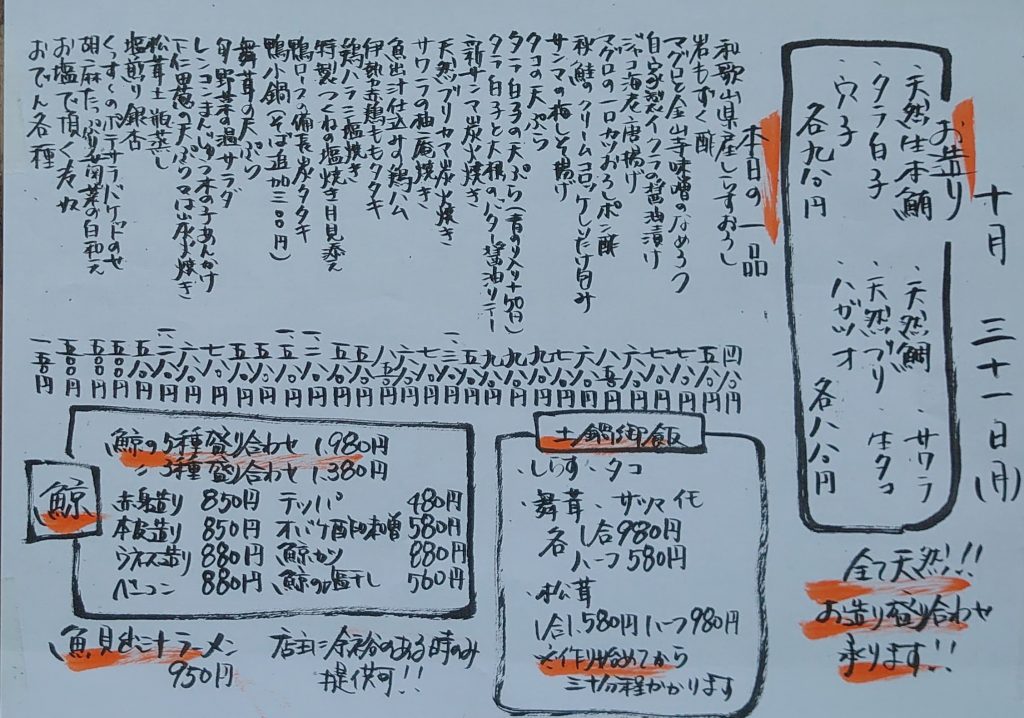 十月 三十一日(月)
お造り
・天然生本鮪
・タラ白子
・穴子
各九八〇円
・天然鯛 ・サワラ
・天然ブリ ・生タコ
・ハガツオ
各八八〇円
全て天然!!
お造り盛り合わせ
承ります!!
本日の一品
和歌山県産しらすおろし 四八〇円
岩もずく酢 五八〇円
マグロと金山寺味噌のなめろう 七八〇円
自家製イクラの醤油漬け
ジャコ海老唐揚げ
マグロの一口カツおろしポン酢
秋鮭のクリームコロッケしいたけ包み
サンマの梅しそ揚げ
タコの天ぷら
タラ白子の天ぷら(青のり入り+50円)
タラ白子と大根のバター醤油ソテー
新サンマ炭火焼き
天然ブリカマ炭火焼き
サワラの柚庵焼き
魚出汁仕込みの鶏ハム
伊勢赤鶏ももタタキ
鶏ハラミ塩焼き
特製つくねの塩焼き月見添え
鴨ロースの備長炭タタキ
鴨小鍋(そば追加三〇〇円)
舞茸の天ぷら
旬野菜の温サラダ
レンコンまんじゅうきの子あんかけ
下仁田葱の天ぷら又は炭火焼き
松茸土瓶蒸し
塩煎り銀杏 五八〇円
くんすくのポテサラバケットのせ 五〇〇円
胡麻たっぷり旬菜の白和え 五〇〇円
お塩で頂く冷奴 五〇〇円
おでん各種 一五〇円
土鍋御飯
・しらす ・タコ
・舞茸 ・サツマイモ
各 1合980円
ハーフ580円
・松茸
1合1,580円 ハーフ980円
※作り始めてから
三十分程かかります
鯨
鯨の5種盛り合わせ 1,980円
〃 3種盛り合わせ 1,380円
赤身造り 850円 テッパ 480円
本皮造り 850円 オバケ酢味噌 580円
ウネス造り 880円 鯨カツ 880円
ベーコン 880円 鯨の塩干し 560円
魚貝だしラーメン
950円
店主に余裕のある時のみ
提供可!!